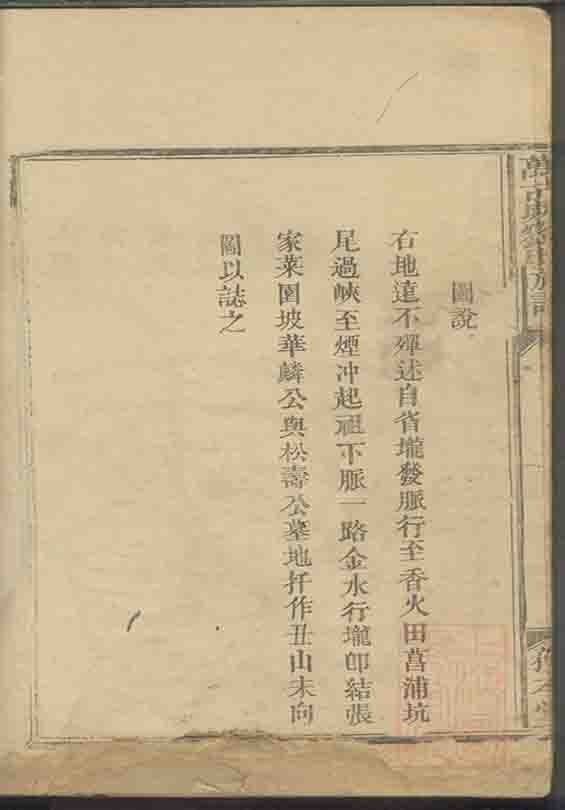 圖說
右地遠不殫述自省壠發脈行至香火田菖浦坑
尾過峽至煙冲起祖下脈一路金水行壠卽結張
家菜園坡華麟公與松壽公墓地扦作丑山未向
圖以誌之